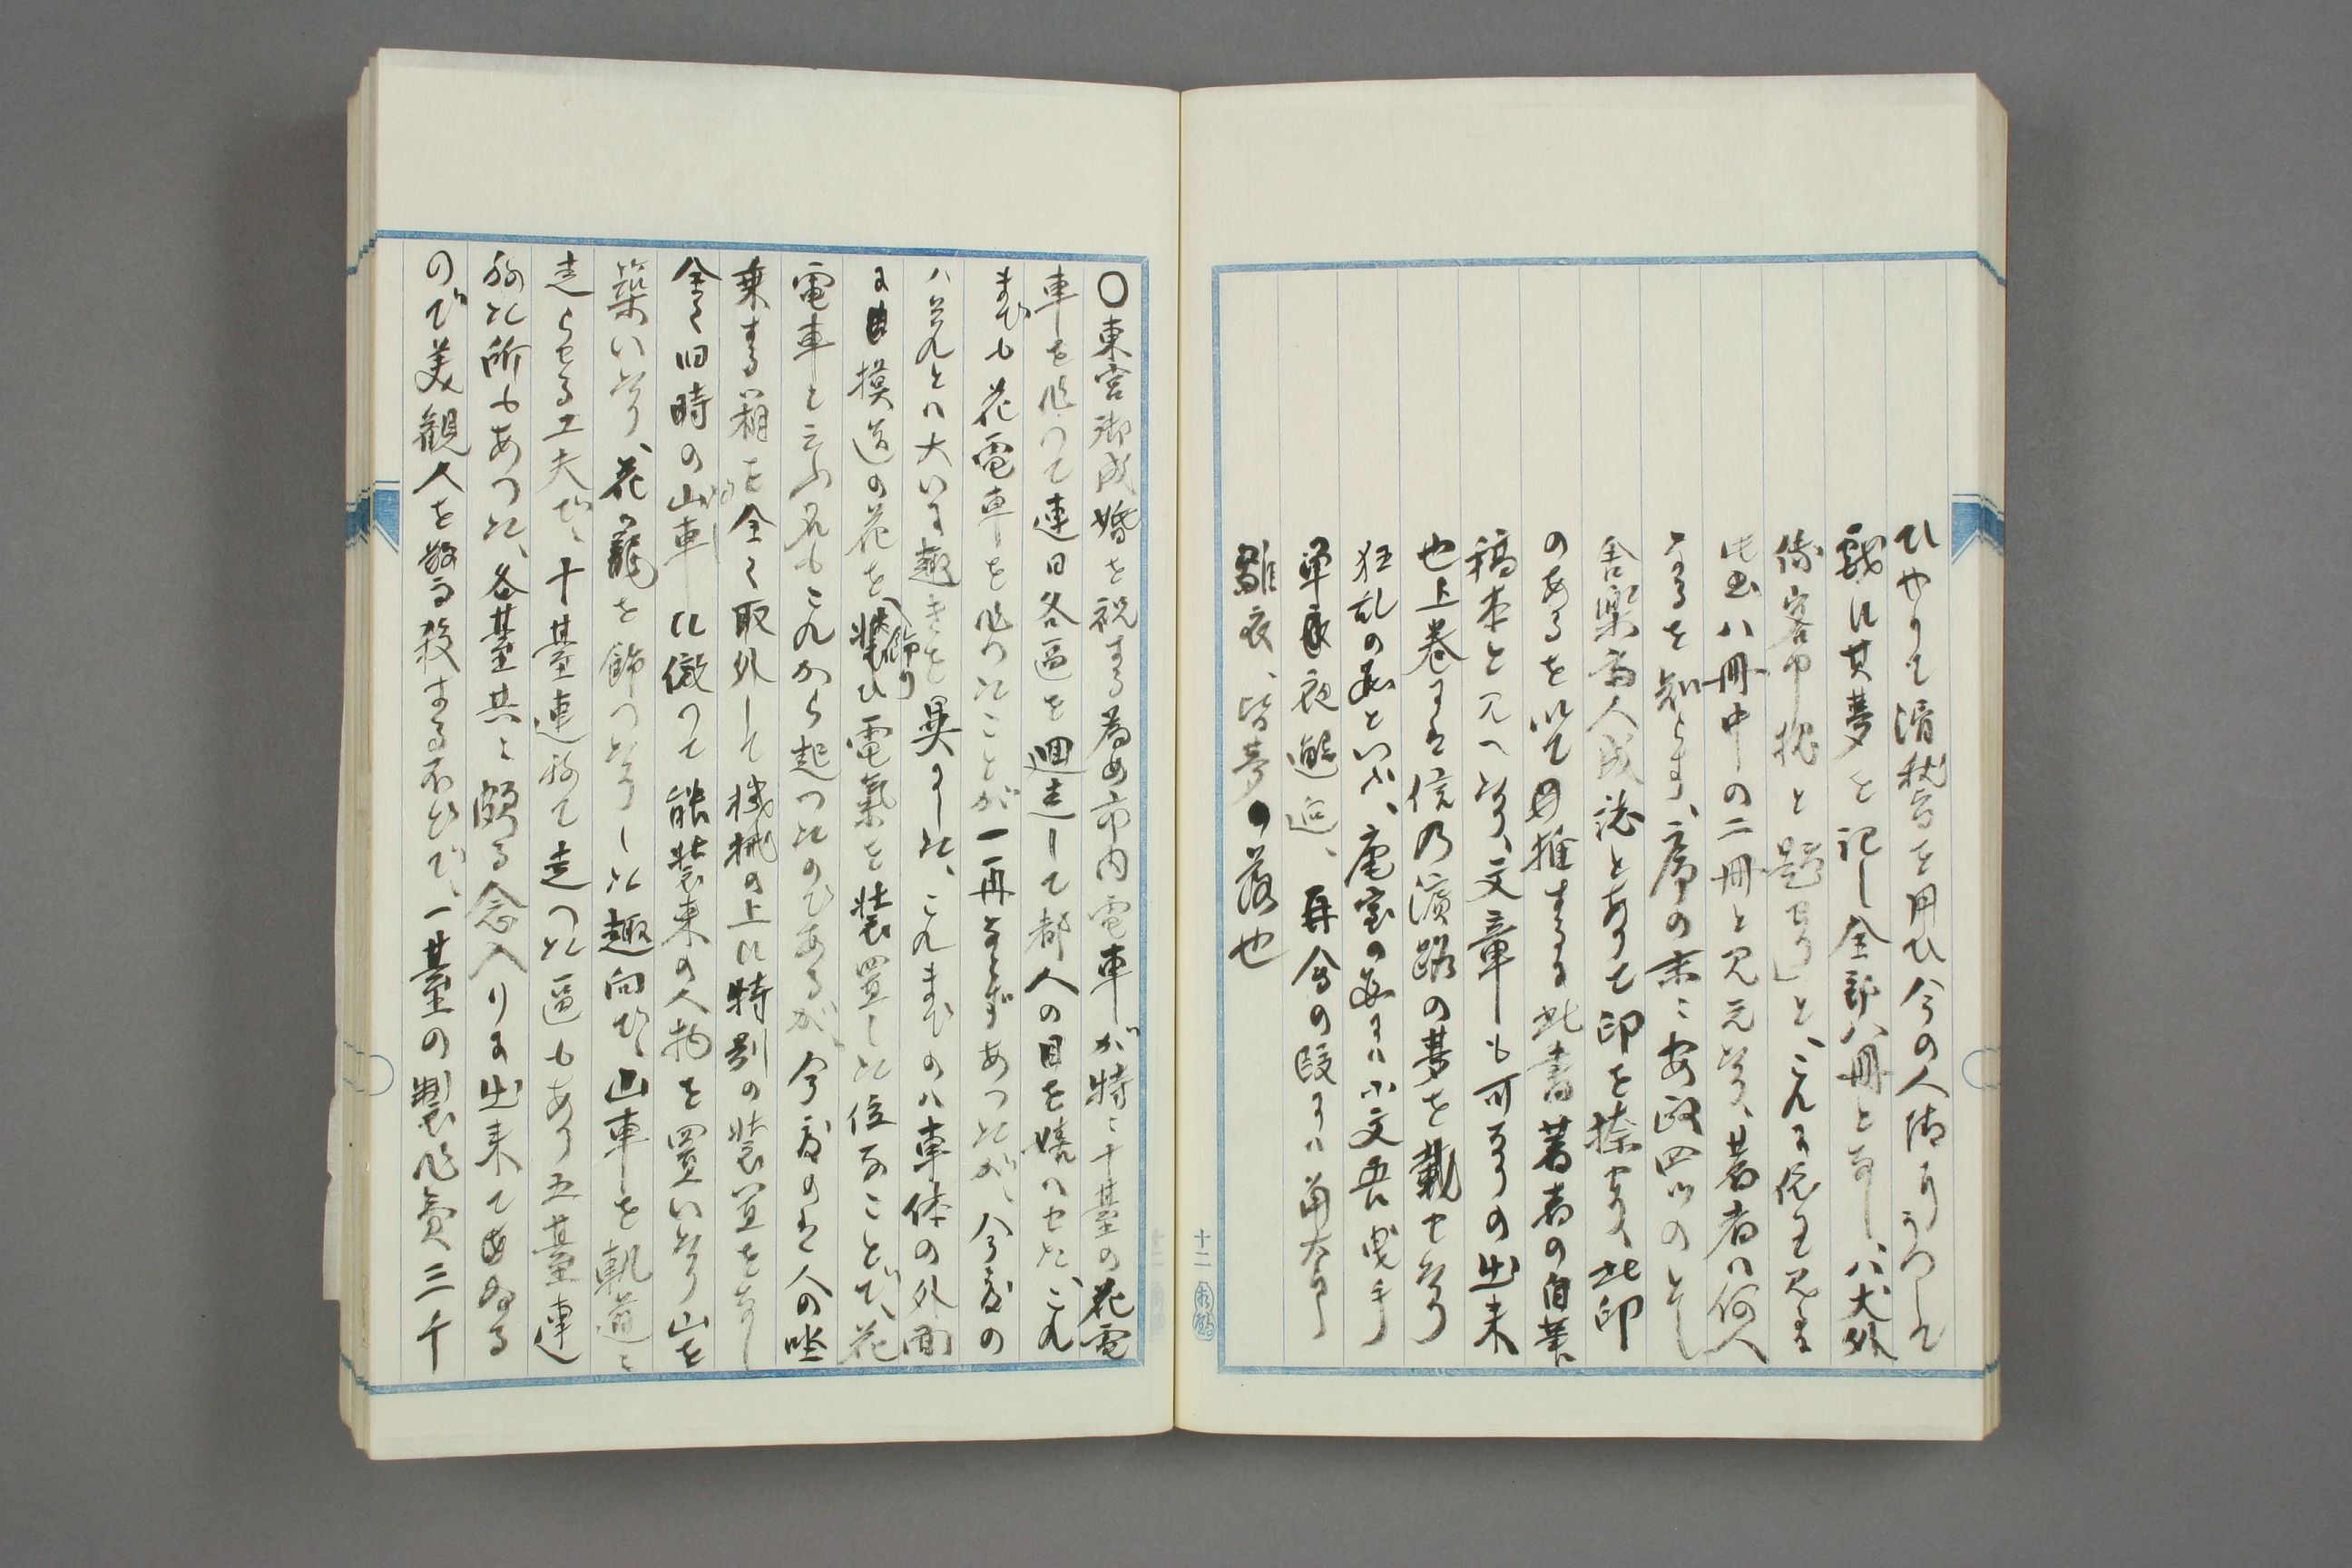 ひやりて滑稽を用ひ今の人情にうつして
戯に其夢を記し全部八冊となし、八犬外
伝客中抱と題せり」と、これに依て見ま
此書八冊中の二冊と見えたり、著者ハ何人
なるを知らす、序の末ニ安政四の
舎楽斎人成誌とありて印を捺せり、此印
のあるを以て推するに此書著者の自筆
稿本と見へたり、文章も可なりの出来
也上巻には信乃濱路の夢を載せたり
狂乱の段といふ、庵室の段には小文吾曳手
単夜邂逅、再会の段には
雛衣、皆夢の落也
〇東宮御成婚を祝する為め市内電車が特に十臺の花電
車を作つて連日各區を廻走して都人の目を嬉ハせた、これ
までも花電車を作つたことが一再ならずあつたが、今度の
ハ是れとハ大いに趣きを異にした、これまでのハ車体の外面
に模造の花を飾り電氣を装置した位なことで、花
電車と云ふ名もこれから起つたのであるが、今度のは人の坐
乗する箱を全く取外して機械の上に特別の装置をなし
全く旧時の山車に倣つて能装束の人物を置いたり山を
築いたり、花籠を飾つたりした趣向で、山車を軌道に
走らせる工夫だ、十臺連ねて走つた區もあり五臺連
ねた所もあつた、各臺共に頗る念入りに出来てゐる
ので美観人を悩殺する不ひで、一臺の製作費三千
十二